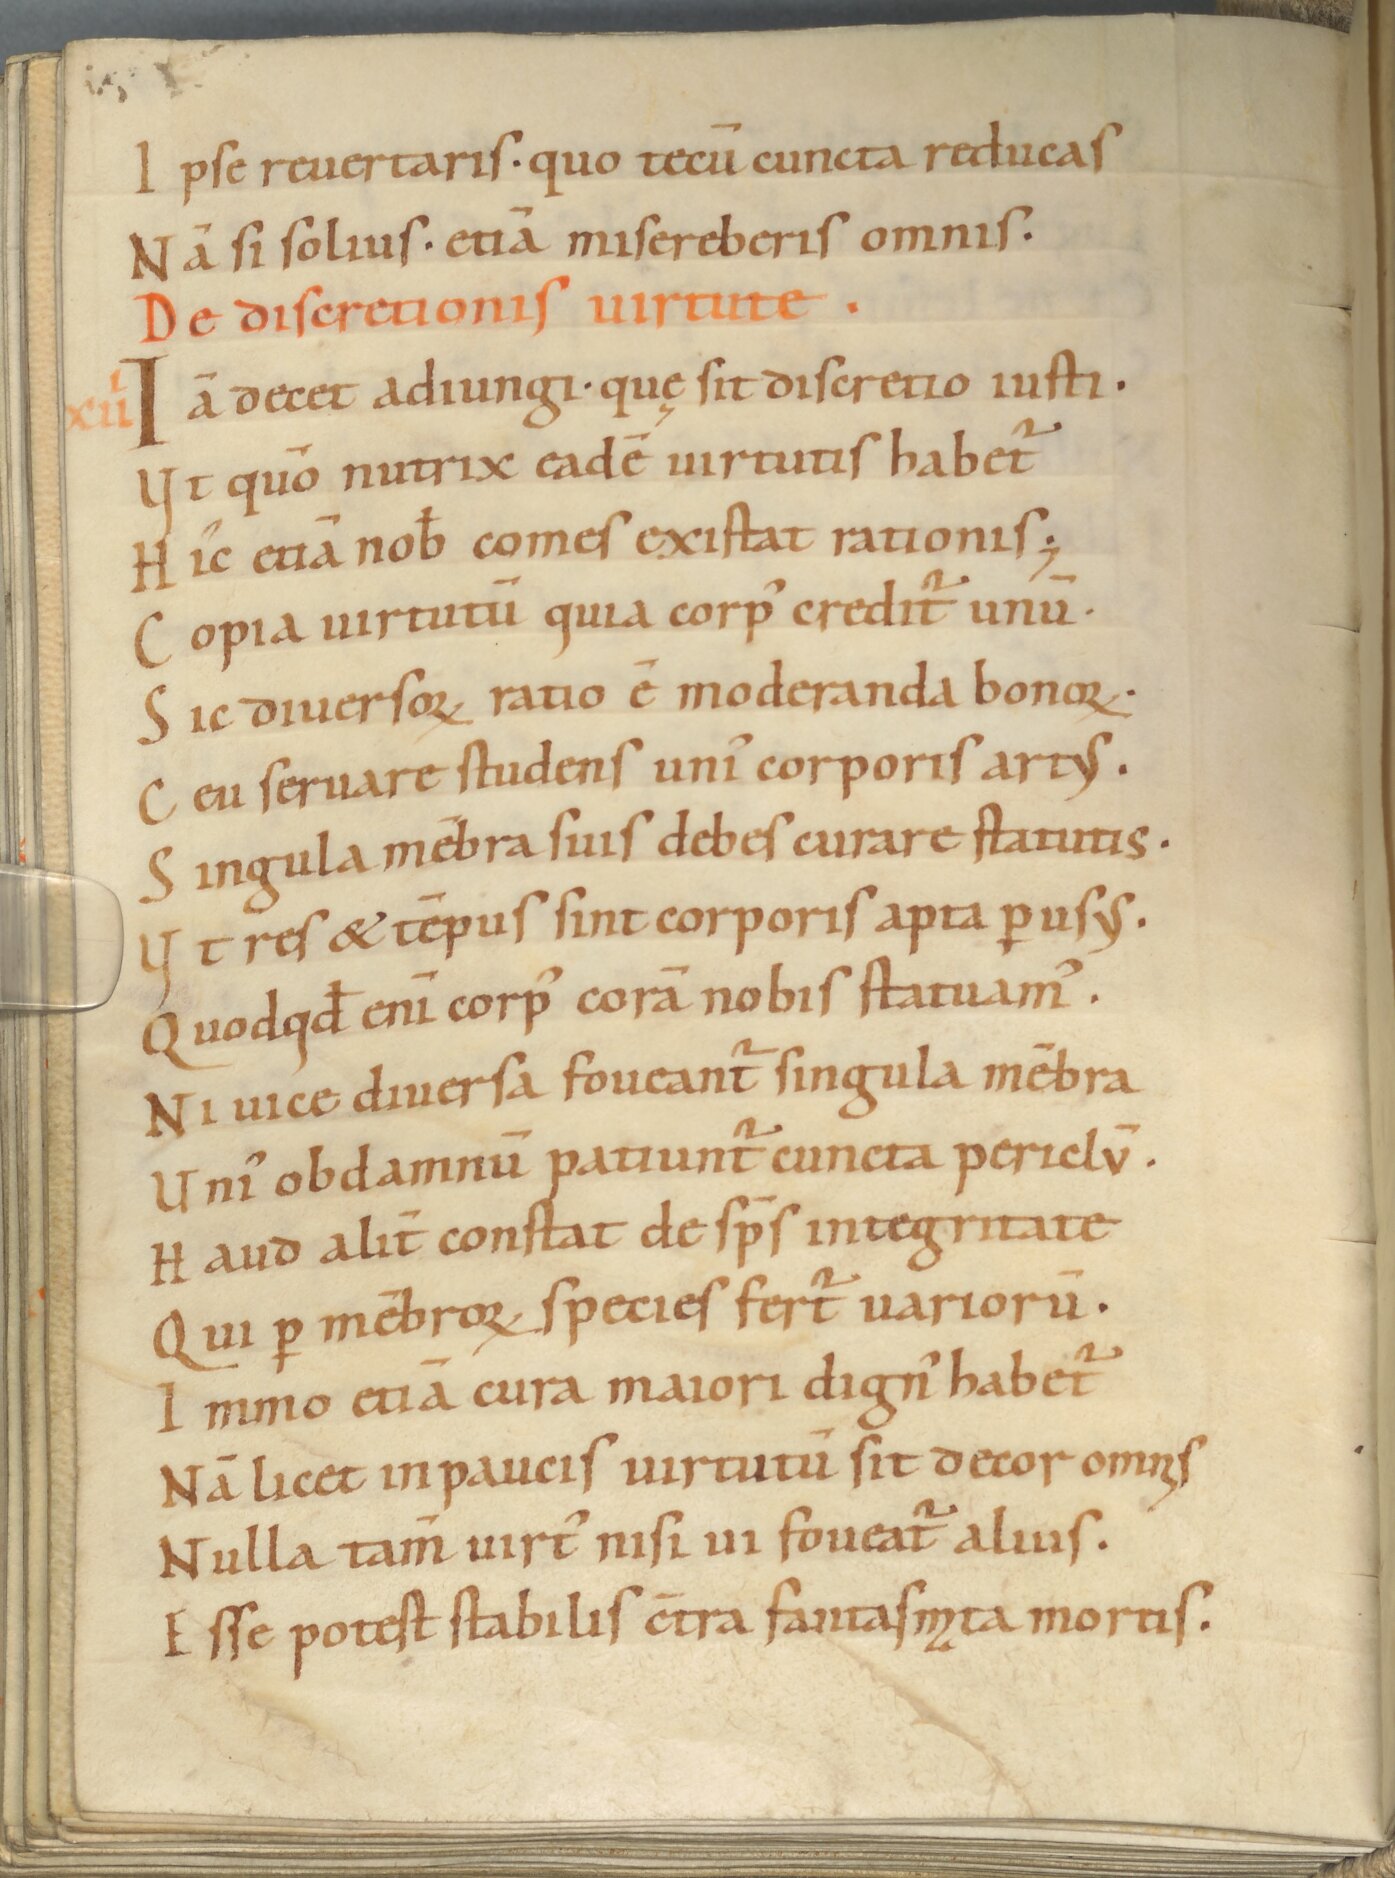 Ipse reuertaris· quo tecū cuncta reducas
Nā si solius· etiā misereberis omnis·
De discretionis uirtute·
xiii Iā decet adiungi· quę sit discretio iusti·
Vt quō nutrix eadē uirtutis habet᷑
Hic etiā nob̄ comes existat rationis;
Copia uirtutū quia corpꝰ credit᷑ unū·
Sic diuersoꝝ ratio ē moderanda bonoꝝ·
Ceu seruare studens uniꝰ corporis artꝰ·
Singula mēbra suis debes curare statutis·
Vt res & tēpus sint corporis apta ꝑ usꝰ·
Quodqd̄ enī corpꝰ corā nobis statuamꝰ·
Ni uice diuersa foueant᷑ singula mēbra
Uniꝰ ob damnū patiunt᷑ cuncta periclū·
Haud alit̄ constat de sp̄s integritate
Qui ꝑ mēbroꝝ species fert᷑ uariorū·
Immo etiā cura maiori dignꝰ habet᷑
Nā licet in paucis uirtutū sit decor omnis
Nulla tam̄ uirtꝰ nisi ui foueat᷑ alius·
Esse potest stabilis c̄tra fantasmata mortis·